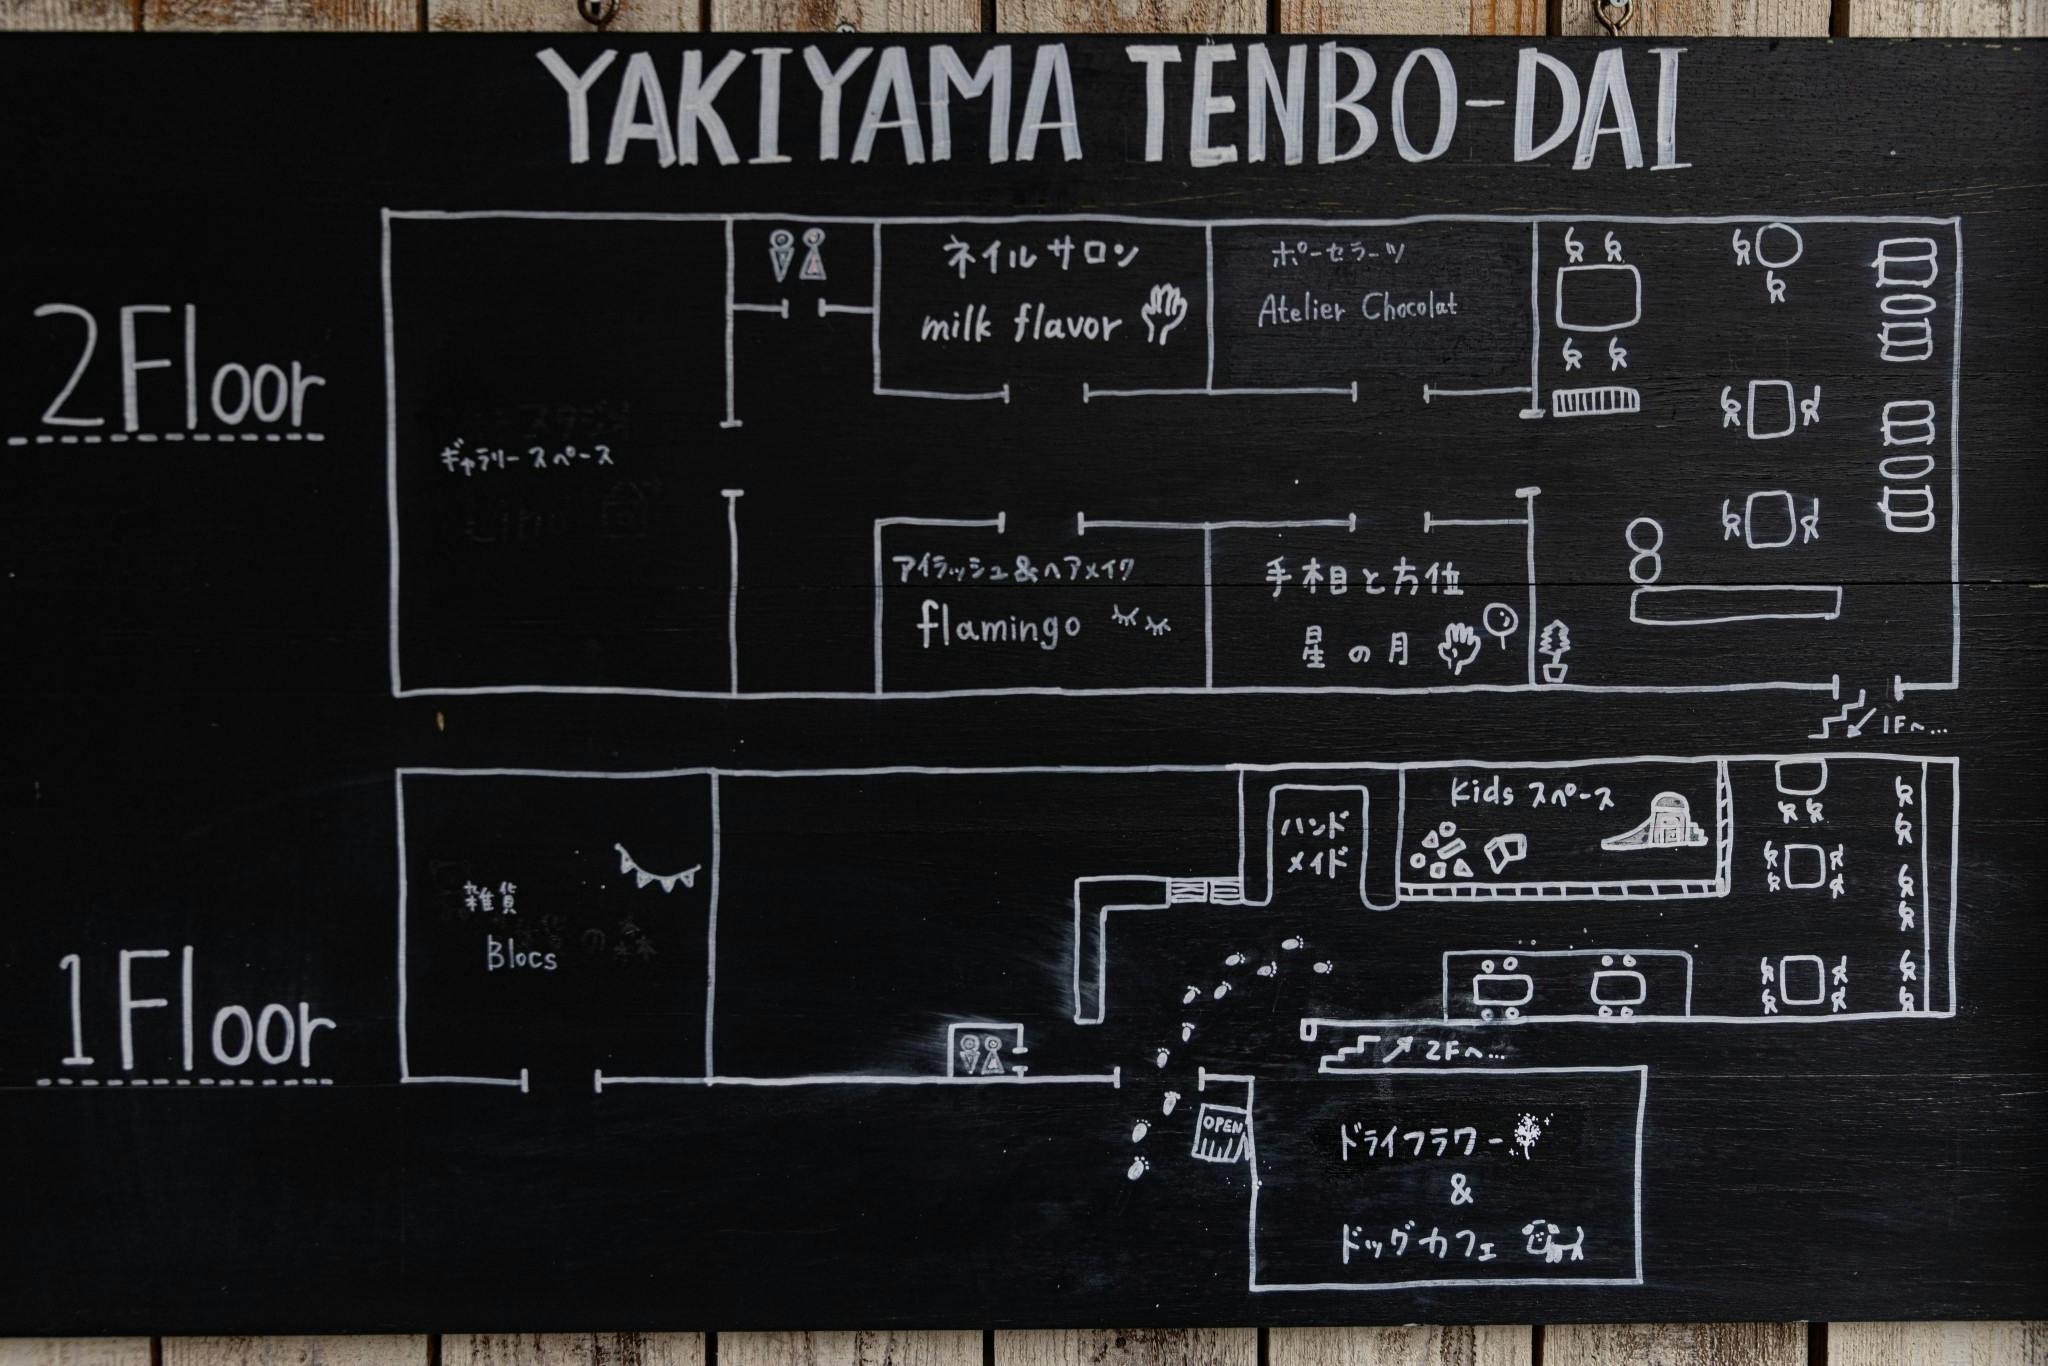 YAKIYAMA TENBO-DAI
2Floor
ネイルサロン
milk flavor
ポーセラーツ
Atelier Chocolat
ギャラリースペース
アイラッシュ&ヘアメイク
flamingo
手相と方位
星の月
1Fへ...
1Floor
雑貨
Blocs
ハンド
メイド
Kids スペース
2Fへ...
OPEN
ドライフラワー
&
ドッグカフェ